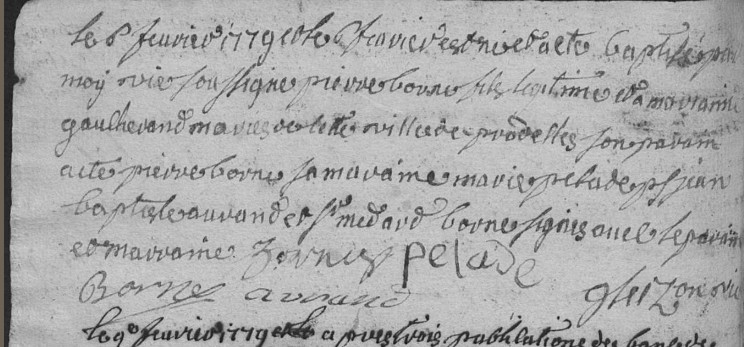 le 6 feurier 1779 et le feurier est nè et a ete baptisè par
moy vic soussigne pierre borne fils legitime et a marianne
gaucherand maries de cette ville de pradelles son parain
a ete pierre borne sa maraine marie pelade ps jean
baptiste aurand et sr medard borne signes auec le parain
et marraine borne pelade
Borne aurand gleizon vic
le 9e feurier 1779 et le a pres trois publications des bans de